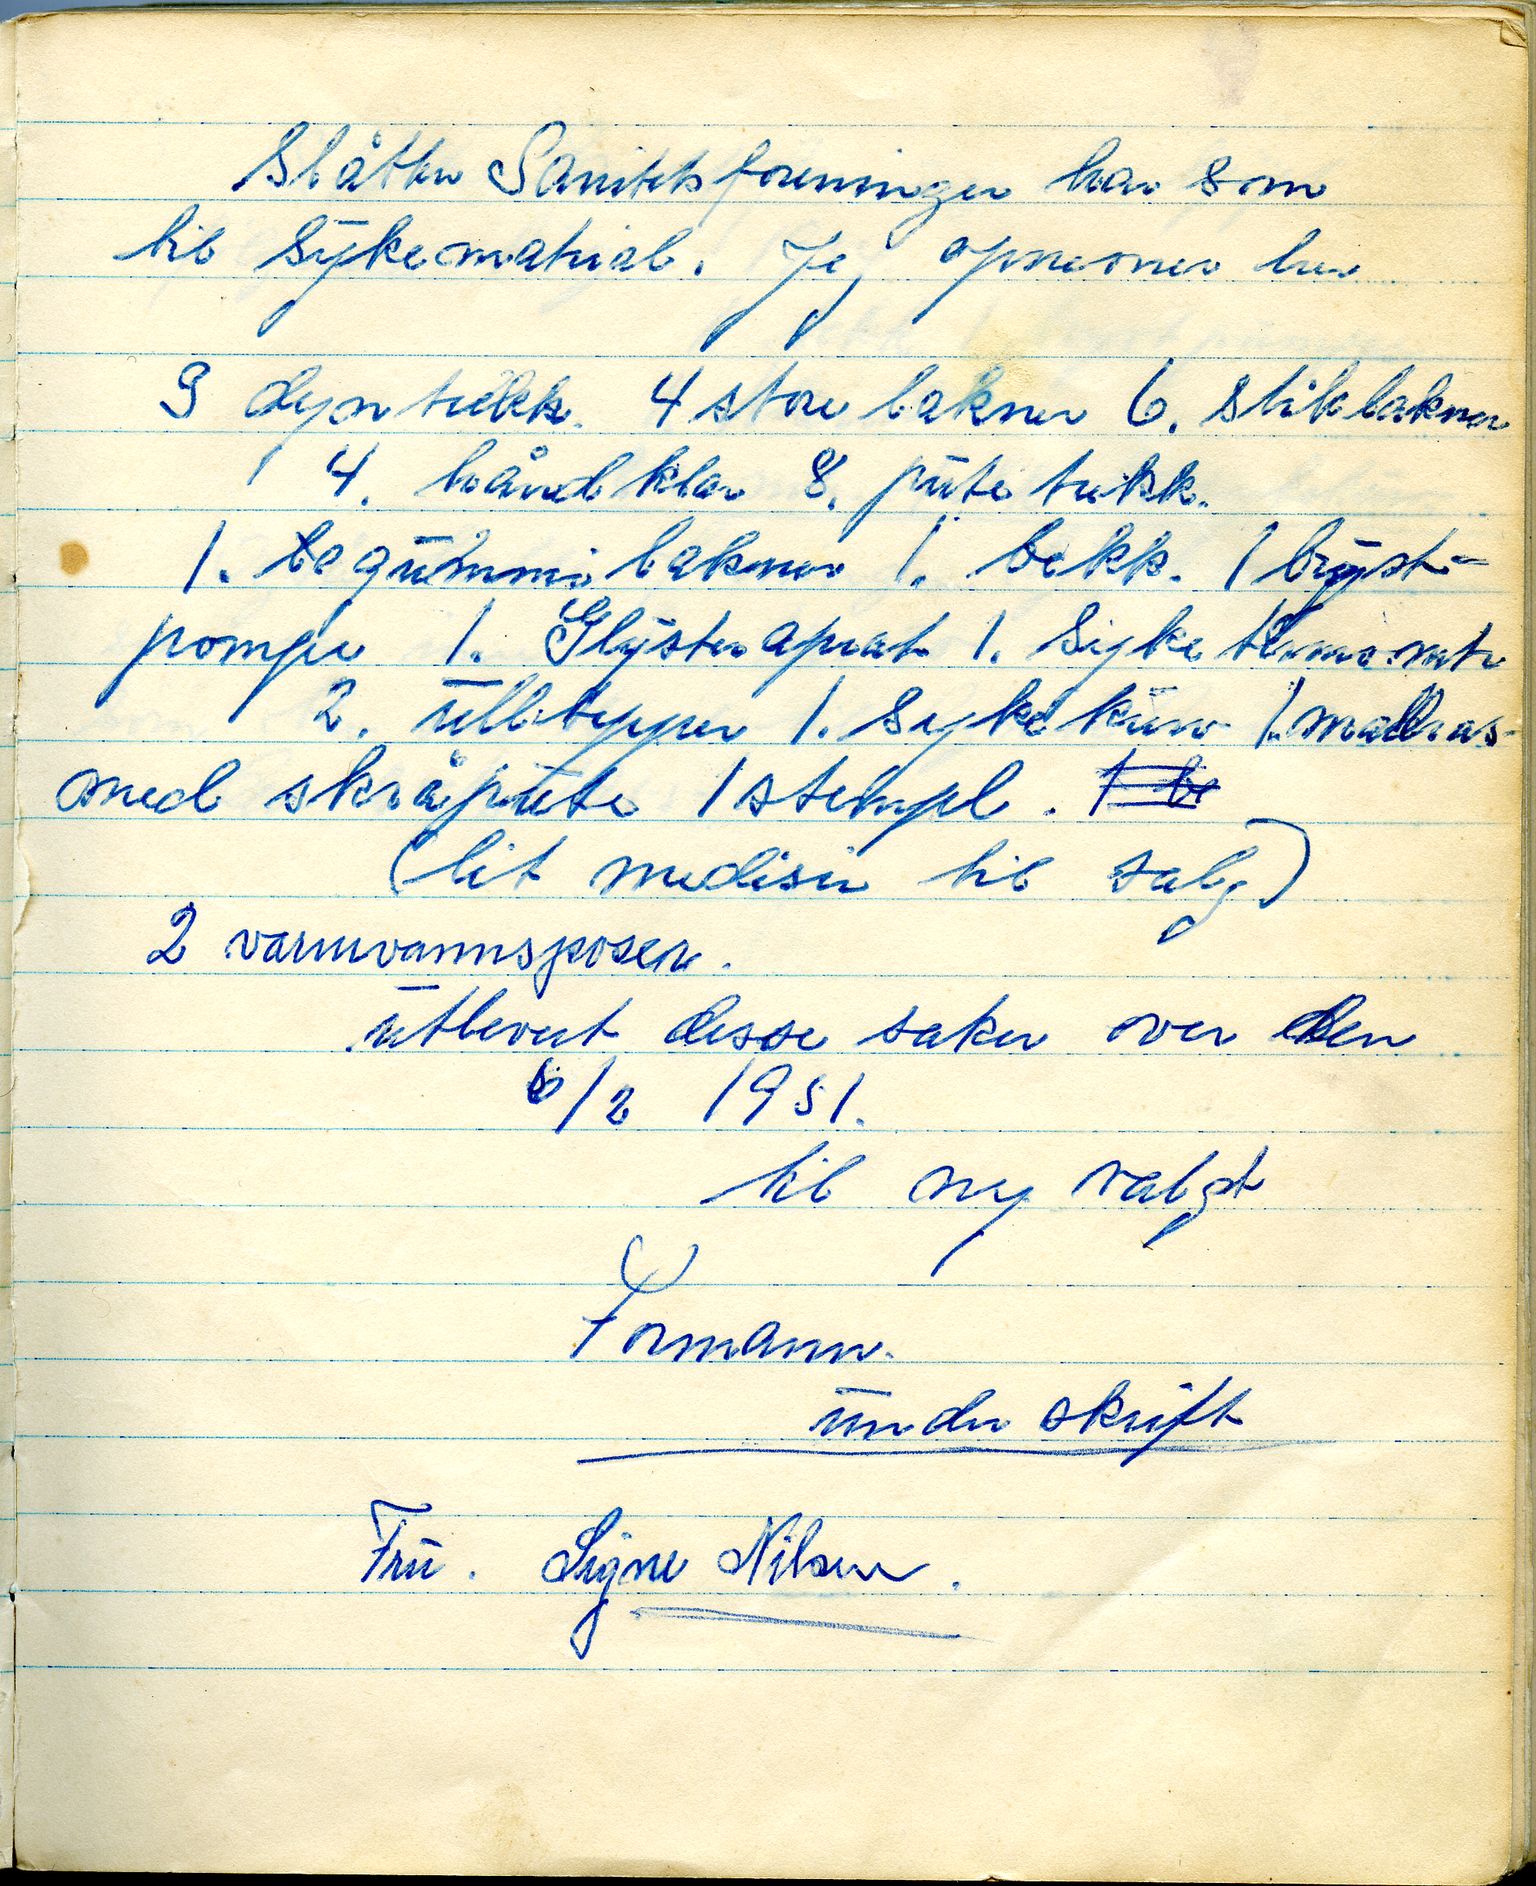 Slåtten Sanitetsforeningen har som
til Sykematrial. Jeg opnevner her
3 dyntrekk. 4 store lakner 6. stiklakner
4. håndklær 8. putetrekk.
1. gummi laknor 1. bekk. 1 bryst-
pompe 1. Glyster aprat 1. Syke termomte
2. ulltepper 1. Sykekurv 1. madras
med skråpute 1 stempl.
(lit medisin til salg)
2 varmvannsposer.
utlevert desse saker over den
6/2 1951.
til ny valgt
Formann.
under skrift
Fru. Signe Nilsen.